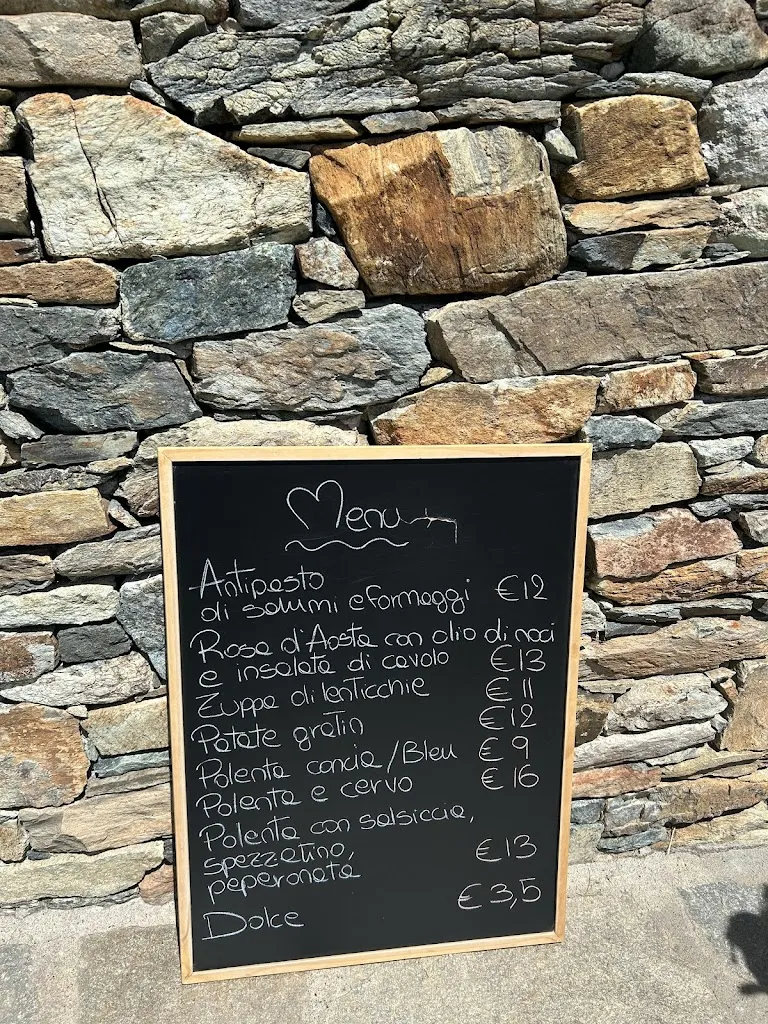 Menu
Antipasto
di salumi e formaggi €12
Rosa d'Aosta con olio di noci
e insalata di cavolo €13
Zuppa di lenticchie €11
Patate gratin €12
Polenta concia/Bleu €9
Polenta e cervo €16
Polenta con salsiccia,
spezzatino,
peperonata €13
Dolce €3,5